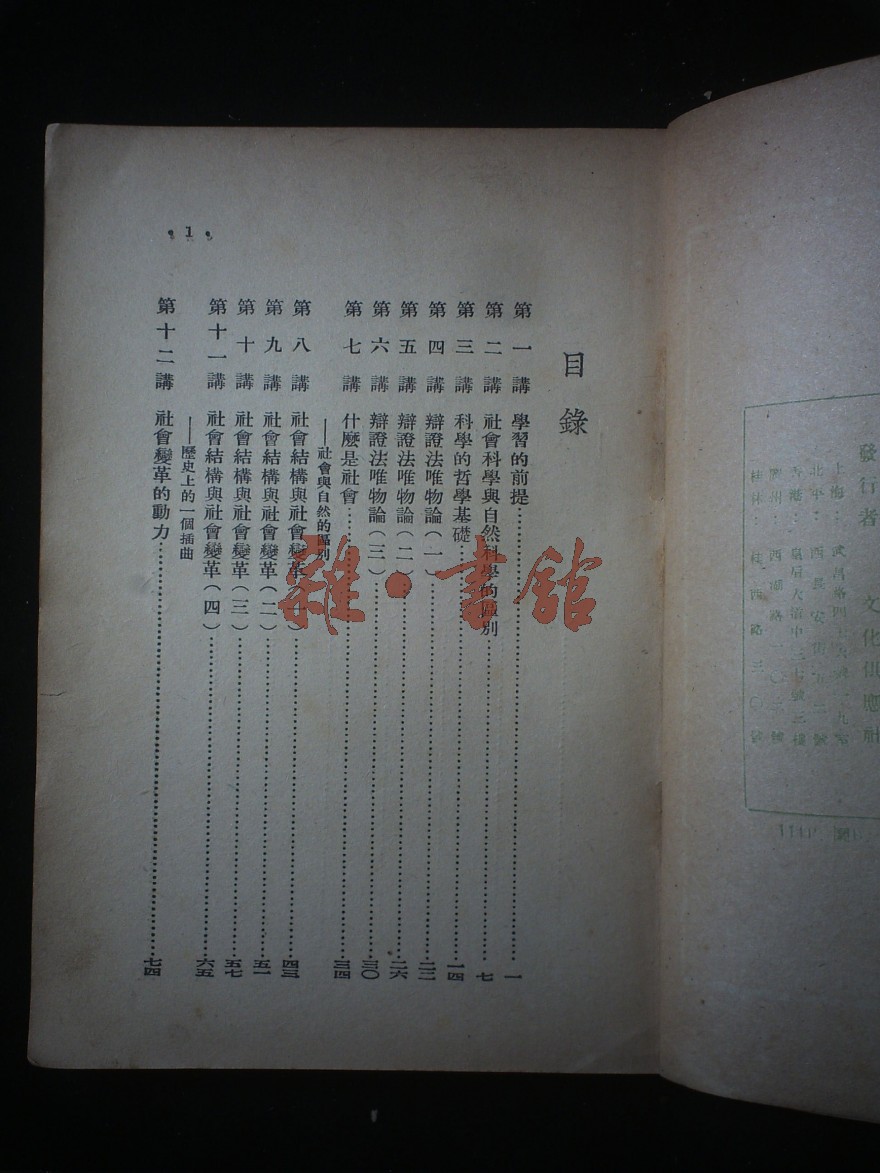 發行者 文化供應社
上海：武昌路四
北平：西長安街
香港：皇后大道中三十七號二樓
廣州：西湖路一〇
桂林：桂西路三〇號
目錄
第一講 學習的前提……一
第二講 社會科學與自然科學的區別……七
第三講 科學的哲學基礎……一四
第四講 辯證法唯物論（一）……二二
第五講 辯證法唯物論（二）……二六
第六講 辯證法唯物論（三）……三〇
第七講 什麼是社會……三四
——社會與自然的區別
第八講 社會結構與社會變革（一）……四三
第九講 社會結構與社會變革（二）……五一
第十講 社會結構與社會變革（三）……五七
第十一講 社會結構與社會變革（四）……六五
——歷史上的一個插曲
第十二講 社會變革的動力……七四
• 1 •
雜·書館